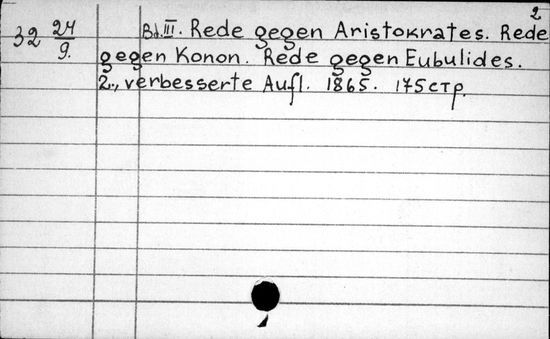 2
32 24/9. Bd. III. Rede gegen Aristokrates. Rede
gegen Konon. Rede gegen Eubulides.
2., verbesserte Aufl. 1865. 175стр.